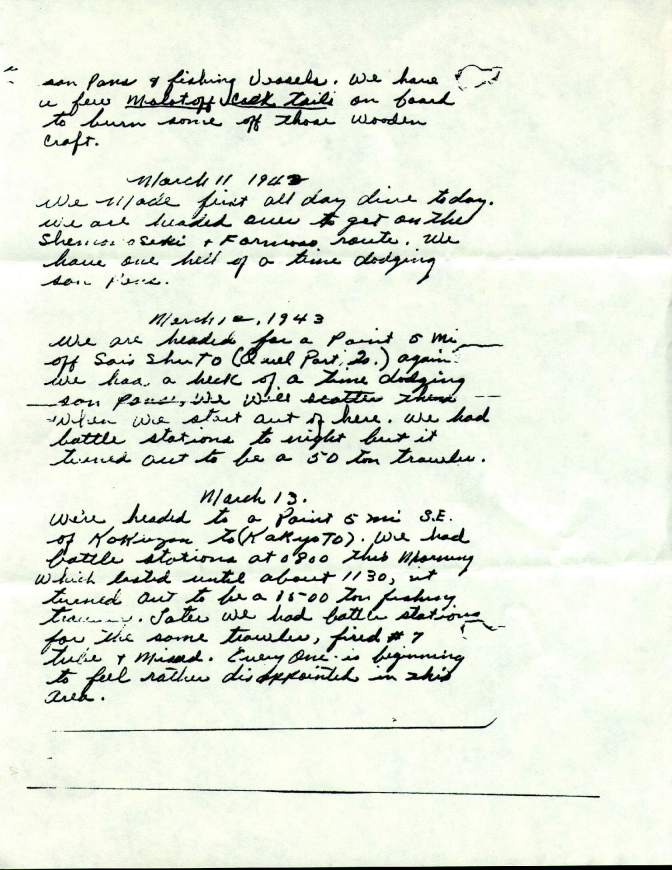 san Pans & fishing Vessels. We have
a few Molotoff Cock tails on board
to burn some off those wooden
craft.
March 11 1943
We Made first all day dive today.
We are headed over to get on the
+ Formosa route. We
have one hell of a time dodging
san Pans.
March 12, 1943
We are headed for a Point 5 Mi
off Sais Shu To (Quel Part, Is.) again
we had a heck of a time dodging
san pans, We Will scatter them
When we start out of here. We had
battle stations to night but it
turned out to be a 50 ton trawler.
March 13.
We're headed to a Point 5 mi S.E.
of to (Kakyo TO). We had
battle stations at 0800 this Morning
Which lasted until about 1130, it
turned out to be a 1500 ton fishing
Later we had battle stations
for the same trawler, fired # 7
tube & Missed. Every One is beginning
to feel rather disappointed in this
area.